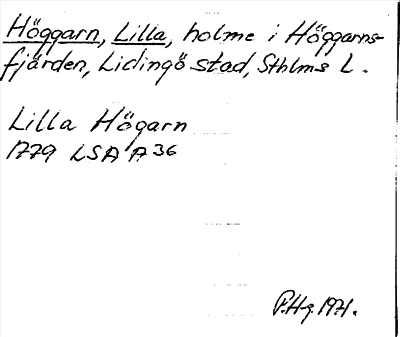 Höggarn, Lilla, holme i Höggarns-
fjärden, Lidingö stad, Sthlms L.
Lilla Högarn
1779 LSA A 36
P.Hg. 1971.